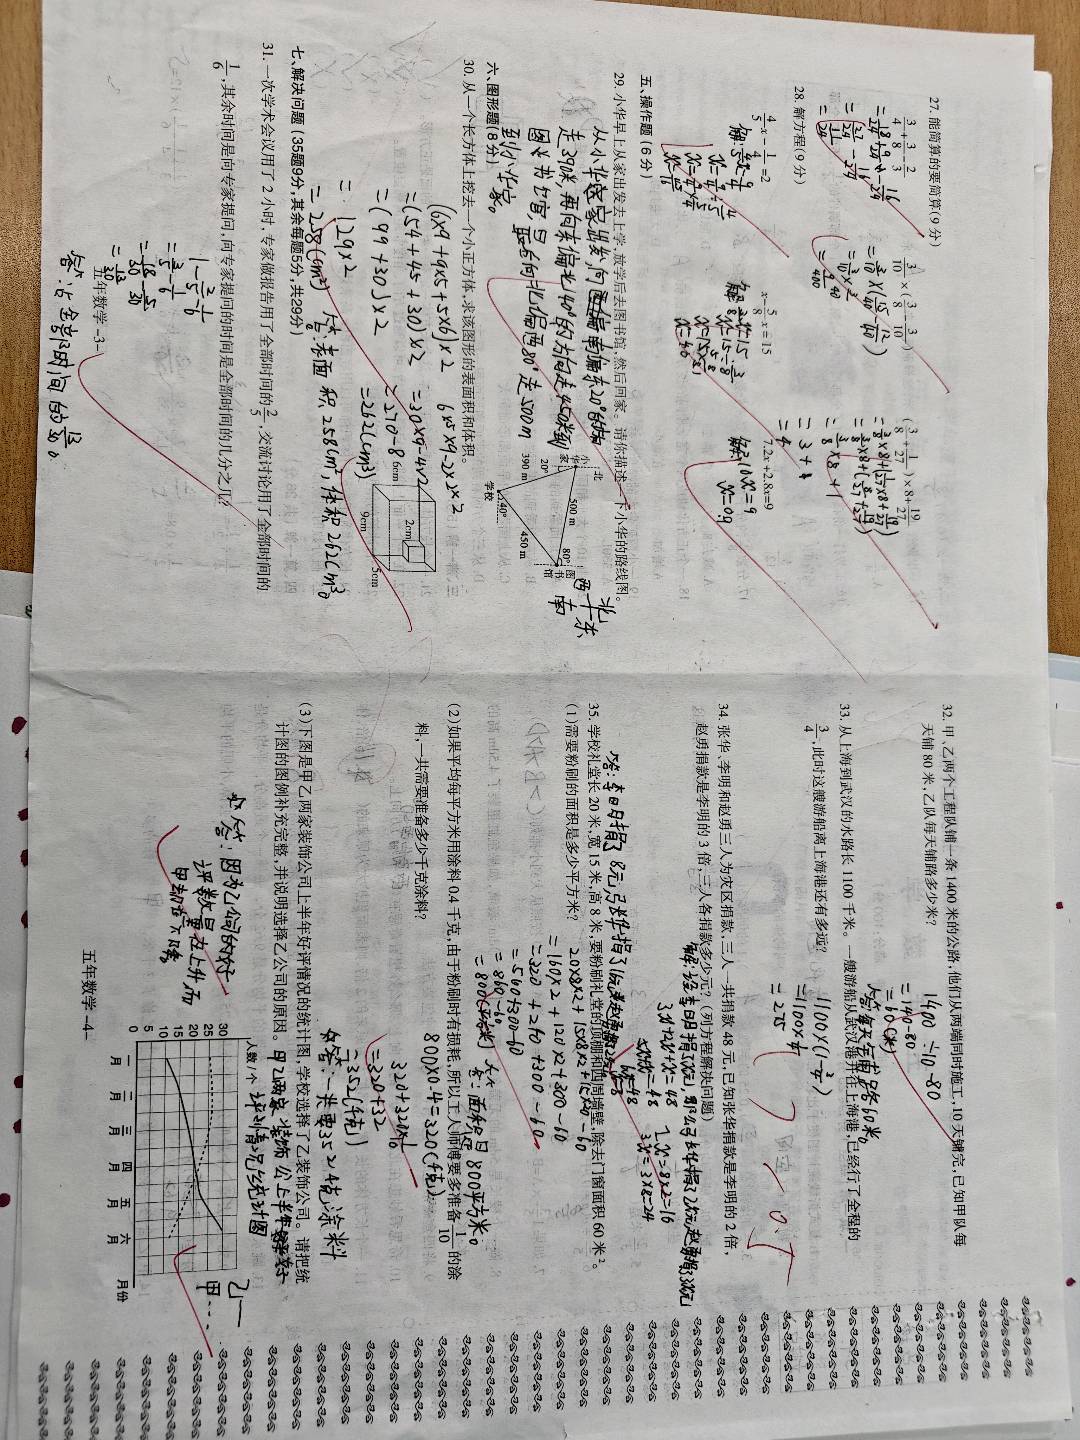 27. 能简算的要简算(9分)
3/4+3/8-2/3
3/10×(3/8-3/10)
(3/8+1/27)×8+19/27
=18/24+9/24-16/24
=27/24-16/24
=11/24
=3/10×(15/40-12/40)
=3/10×3/40
=9/400
=3/8×8+1/27×8+19/27
=3/8×8+(8/27+19/27)
=3/8×8+1
=3+1
=4
28. 解方程(9分)
4/5x-1/4=2
x-5/8x=15
7.2x+2.8x=9
解:10x=9
x=0.9
五、操作题(6分)
29. 小华早上从家出发去上学,放学后去图书馆,然后回家。请你描述一下小华的路线图。
从小华家出发,向南偏东20°的方向
走390米,再向东偏北40°的方向走450米到
图书馆,最后向北偏西80°走500m
到小华家。
北
小华家
500 m
80°
图书馆
20°
390 m
450 m
40°
学校
北
西 东
南
六、图形题(8分)
30. 从一个长方体上挖去一个小正方体,求该图形的表面积和体积。
(6×9+9×5+5×6)×2
=(54+45+30)×2
=(99+30)×2
=129×2
=258(cm²)
6×5×9-2×2×2
=30×9-4×2
=270-8
=262(cm³)
答:表面积258cm²,体积262cm³。
2cm
6cm
9cm
5cm
七、解决问题(35题9分,其余每题5分,共29分)
31. 一次学术会议用了2小时,专家做报告用了全部时间的2/5,交流讨论用了全部时间的
1/6,其余时间是向专家提问,向专家提问的时间是全部时间的几分之几?
1-2/5-1/6
=3/5-1/6
=18/30-5/30
=13/30
答:占全部时间的13/30。
五年数学-3-
32. 甲、乙两个工程队铺一条1400米的公路,他们从两端同时施工,10天铺完,已知甲队每
天铺80米,乙队每天铺路多少米?
1400÷10-80
=140-80
=60(米)
33. 从上海到武汉的水路长1100千米。一艘游船从武汉港开往上海港,已经行了全程的
3/4,此时这艘游船离上海港还有多远?
1100×(1-3/4)
=1100×1/4
=275
34. 张华、李明和赵勇三人为灾区捐款,三人一共捐款48元,已知张华捐款是李明的2倍,
赵勇捐款是李明的3倍,三人各捐款多少元?(列方程解决问题)
3x+2x+x=48
6x=48
x=8
2x=8×2=16
3x=3×8=24
35. 学校礼堂长20米,宽15米,高8米,要粉刷礼堂的顶棚和四周墙壁,除去门窗面积60米²。
(1)需要粉刷的面积是多少平方米?
20×8×2+15×8×2+15×20-60
=160×2+120×2+300-60
=320+240+300-60
=560+300-60
=860-60
=800(平方米)
(2)如果平均每平方米用涂料0.4千克,由于粉刷时有损耗,所以工人师傅要多准备1/10的涂
料,一共需要准备多少千克涂料?
800×0.4=320(千克)
320+320×1/10
=320+32
=352(千克)
答:一共要352千克涂料
(3)下图是甲乙两家装饰公司上半年好评情况的统计图,学校选择了乙装饰公司。请把统
计图的图例补充完整,并说明选择乙公司的原因。
人数/个
30
25
20
15
10
5
0
一月 二月 三月 四月 五月 六月 月份
乙—
甲…
答:因为乙公司的好
评数目重在上升而
甲却在下降
五年数学-4-